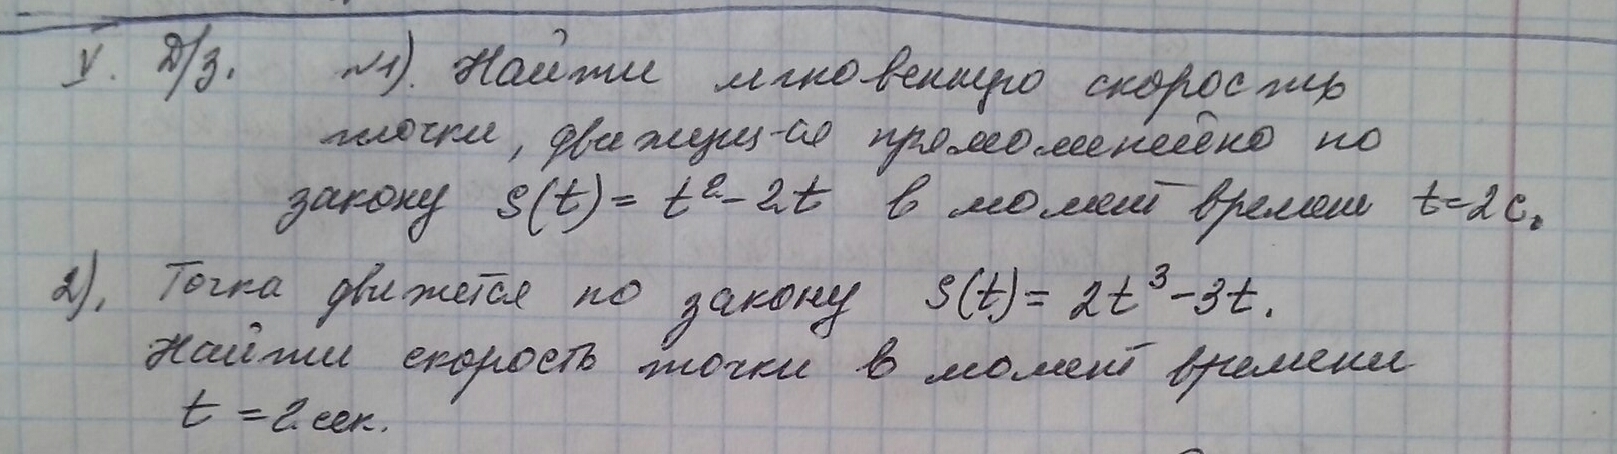 V. Д/з. №1). Найти мгновенную скорость
точки, движущ-ся прямолинейно по
закону S(t) = t² - 2t в момент времени t=2с.
2). Точка движется по закону S(t) = 2t³ - 3t.
Найти скорость точки в момент времени
t = 2 сек.